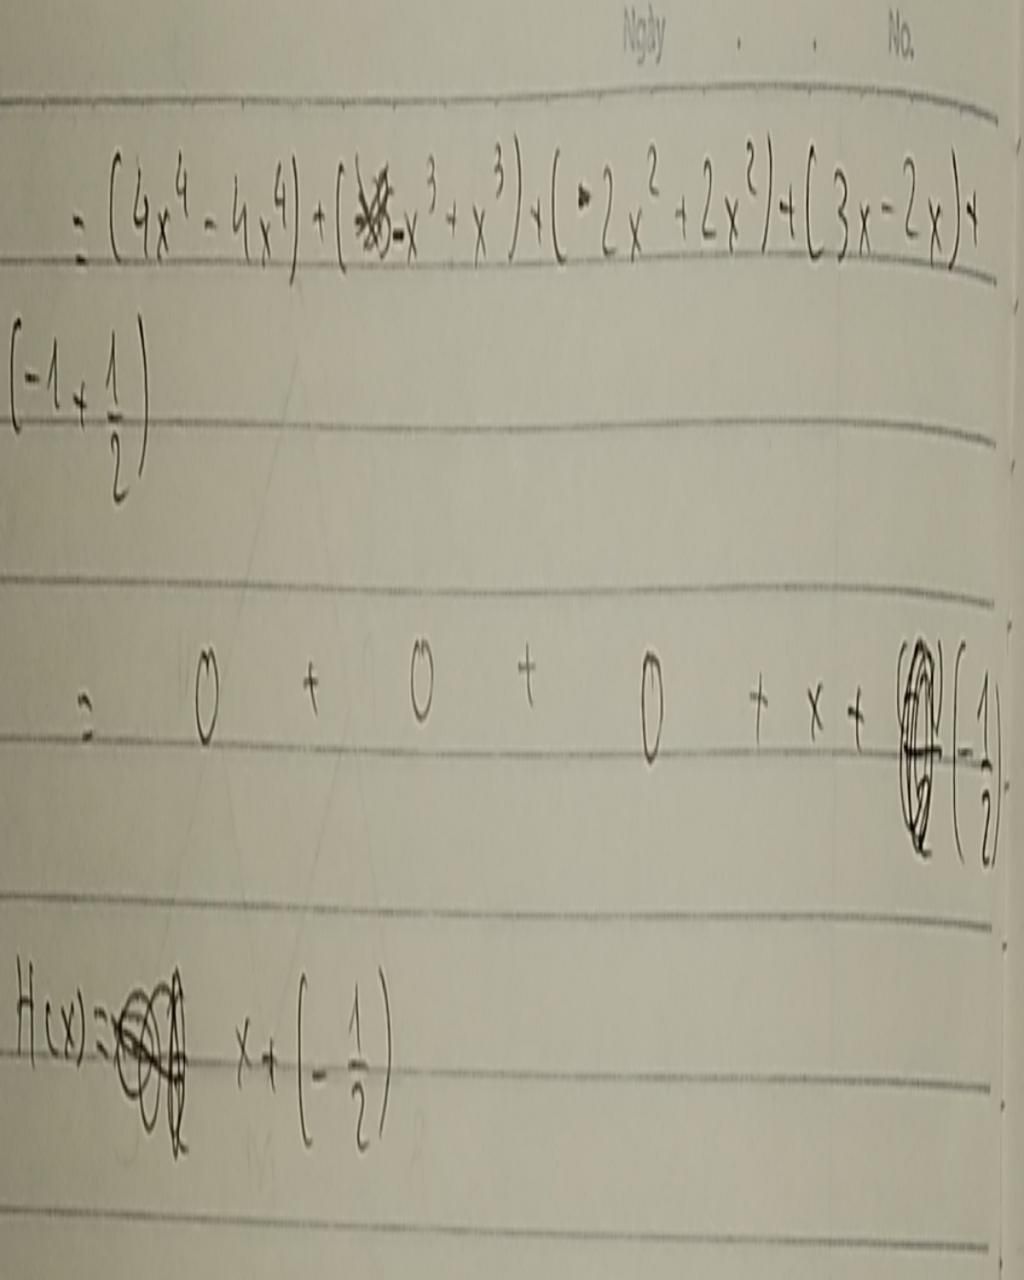 Ngày . . No.
= (4x⁴ - 4x⁴) + (-x³ + x³) + (-2x² + 2x²) + (3x - 2x) +
(-1 + 1/2)
= 0 + 0 + 0 + x + (-1/2)
H(x) = x + (-1/2)